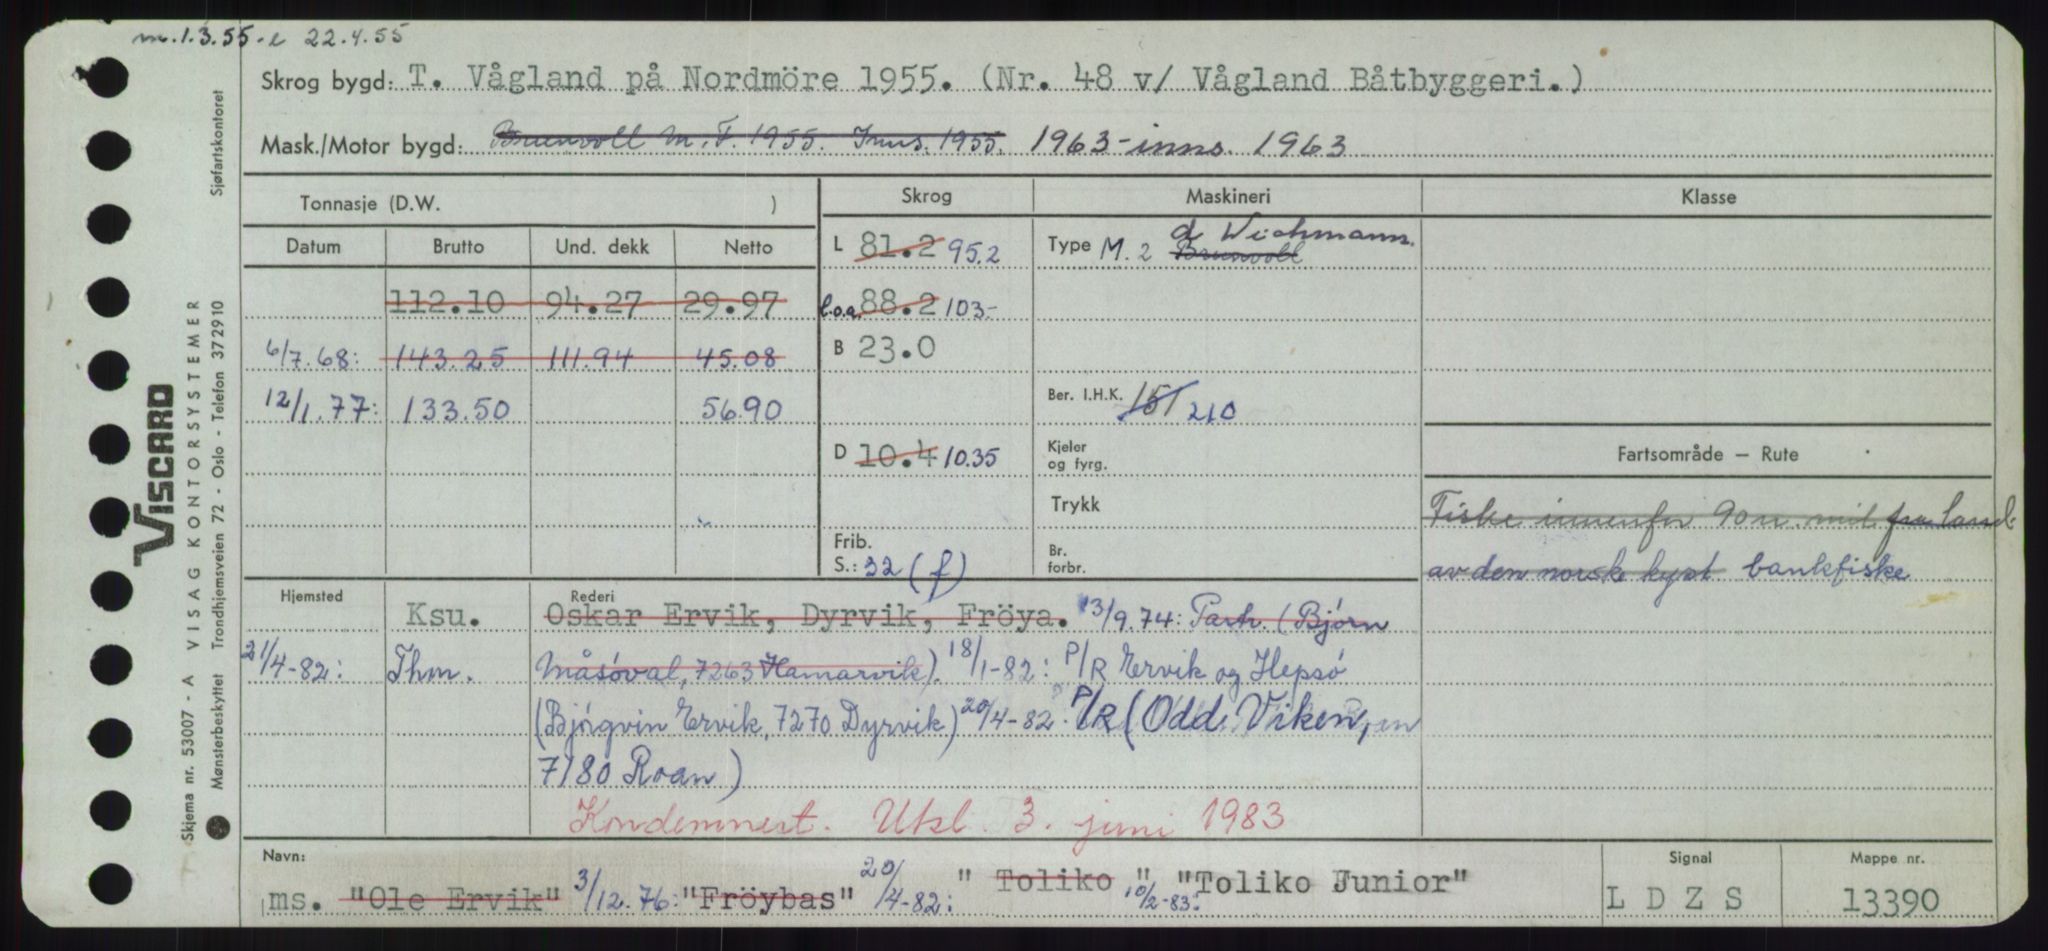 m. 1.3.55 - e 22.4.55
Skrog bygd: T. Vågland på Nordmöre 1955. (Nr. 48 v/ Vågland Båtbyggeri.)
Mask./Motor bygd: Brunvoll M.F. 1955. Inns. 1955. 1963 - inns. 1963
Tonnasje (D.W. ) Skrog Maskineri Klasse
Datum Brutto Und. dekk Netto L 81.2 95.2 Type M. 2 d Wichmann.
Brunvoll
112.10 94.27 29.97 l.o.a. 88.2 103-
6/7.68: 143.25 111.94 45.08 B 23.0
12/1.77: 133.50 56.90 Ber. I.H.K. 151 210
D 10.4 10.35 Kjeler og fyrg. Fartsområde – Rute
Trykk Fiske innenfor 90 n. mil fra land
Frib. S.: 32 (f) Br. forbr. av den norske kyst bankfiske
Hjemsted Rederi
Ksu. Oskar Ervik, Dyrvik, Fröya. 13/9.74: Partr. (Bjórn
21/4-82: Thm. Måsóval, 7263 Hamarvik). 18/1-82: P/R Ervik og Hepsó
(Bjórgvin Ervik, 7270 Dyrvik) 20/4-82. P/R (Odd Viken,
7180 Roan)
Kondemnert. Utsl. 3. juni 1983
Navn: Signal Mappe nr.
ms. "Ole Ervik" 3/12.76: "Fröybas" 20/4-82: "Toliko" 10/2-83: "Toliko Junior" L D Z S 13390
VISCARD
VISAG KONTORSYSTEMER
Skjema nr. 53007 - A
Mønsterbeskyttet Trondhjemsveien 72 - Oslo - Telefon 372910 Sjøfartskontoret